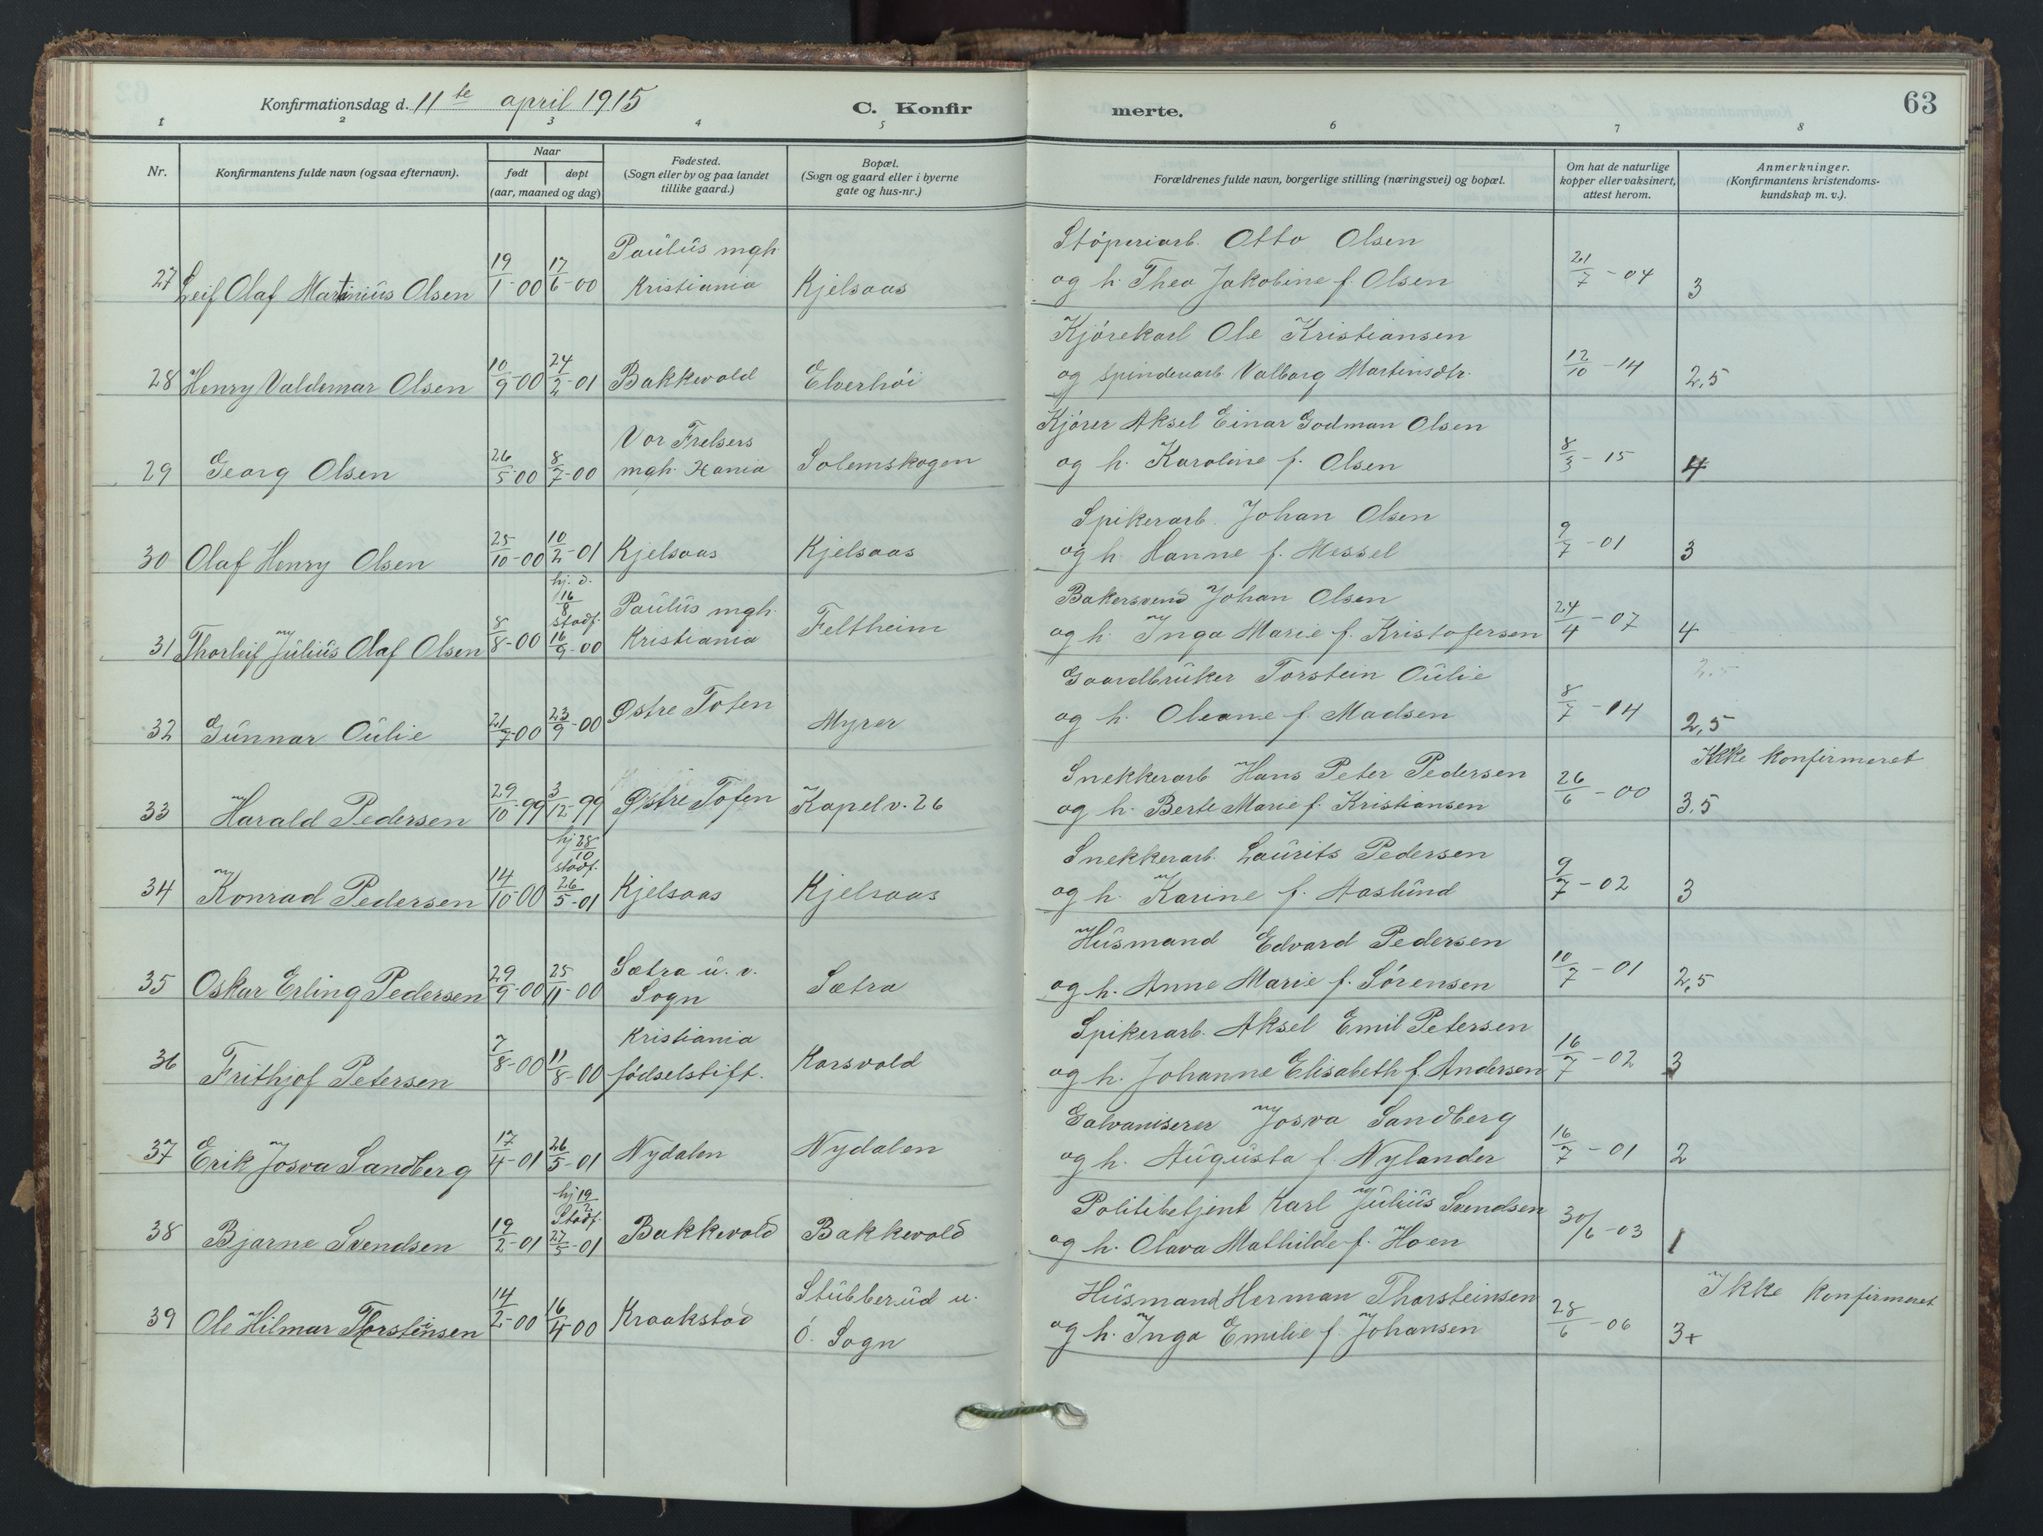 Konfirmationsdag d. 11te april 1915 C. Konfirmerte. 63
1 2 3 4 5 6 7 8
Nr.
Konfirmantens fulde navn (ogsaa efternavn).
Naar
født døpt
(aar, maaned og dag)
Fødested.
(Sogn eller by og paa landet
tillike gaard.)
Bopæl.
(Sogn og gaard eller i byerne
gate og hus-nr.)
Forældrenes fulde navn, borgerlige stilling (næringsvei) og bopæl.
Om hat de naturlige
kopper eller vaksinert,
attest herom.
Anmerkninger.
(Konfirmantens kristendoms-
kundskap m. v.).
Paulus mgh. Støperiarb. Otto Olsen
27 Leif Olaf Martinius Olsen 19/1-00 17/6-00 Kristiania Kjelsaas og h. Thea Jakobine f. Olsen 21/7-04 3
Kjørekarl Ole Kristiansen
28 Henry Valdemar Olsen 10/9-00 24/2-01 Bakkevold Elverhöi og spinderarb. Valborg Martinsdtr. 12/10-14 2,5
Vor Frelsers Kjører Aksel Einar Godman Olsen
29 Georg Olsen 26/5-00 8/7-00 mgh. Xania Solemskogen og h. Karoline f. Olsen 8/3-15 4
Spikerarb. Johan Olsen
30 Olaf Henry Olsen 25/10-00 10/2-01 Kjelsaas Kjelsaas og h. Hanne f. Messel 9/7-01 3
hj. d. 16/8 stadf. Paulus mgh. Bakersvend Johan Olsen
31 Thorleif Julius Olaf Olsen 8/8-00 16/9-00 Kristiania Feltheim og h. Inga Marie f. Kristofersen 24/4-07 4
Gaardbruker Torstein Oulie 2,5
32 Gunnar Oulie 21/7-00 23/9-00 Østre Toten Myrer og h. Oleane f. Madsen 8/7-14 2,5
Snekkerarb Hans Peter Pedersen Ikke konfirmeret
33 Harald Pedersen 29/10-99 3/12-99 Østre Toten Kapelv. 26 og h. Berte Marie f. Kristiansen 26/6-00 3,5
hj 28/10 stadf. Snekkerarb. Laurits Pedersen
34 Konrad Pedersen 14/10-00 26/5-01 Kjelsaas Kjelsaas og h. Karine f. Aaslund 9/7-02 3
Sætra u. v. Husmand Edvard Pedersen
35 Oskar Erling Pedersen 29/9-00 25/11-00 Sogn Sætra og h. Anne Marie f. Sørensen 10/7-01 2,5
Kristiania Spikerarb. Aksel Emil Petersen
36 Frithjof Petersen 7/8-00 11/8-00 fødselstift. Korsvold og h. Johanne Elisabeth f. Andersen 16/7-02 3
Galvaniserer Josva Sandberg
37 Erik Josva Sandberg 17/4-01 26/5-01 Nydalen Nydalen og h. Augusta f. Nylander 16/7-01 2
hj 19/2 Stadf. Politibetjent Karl Julius Svendsen
38 Bjarne Svendsen 19/2-01 27/5-01 Bakkevold Bakkevold og h. Olava Mathilde f. Hoen 30/6-03 1
Stubberud u. Husmand Herman Thorsteinsen Ikke konfirmeret
39 Ole Hilmar Thorsteinsen 14/2-00 16/4-00 Kraakstad Ö. Sogn og h. Inga Emilie f. Johansen 28/6-06 3+